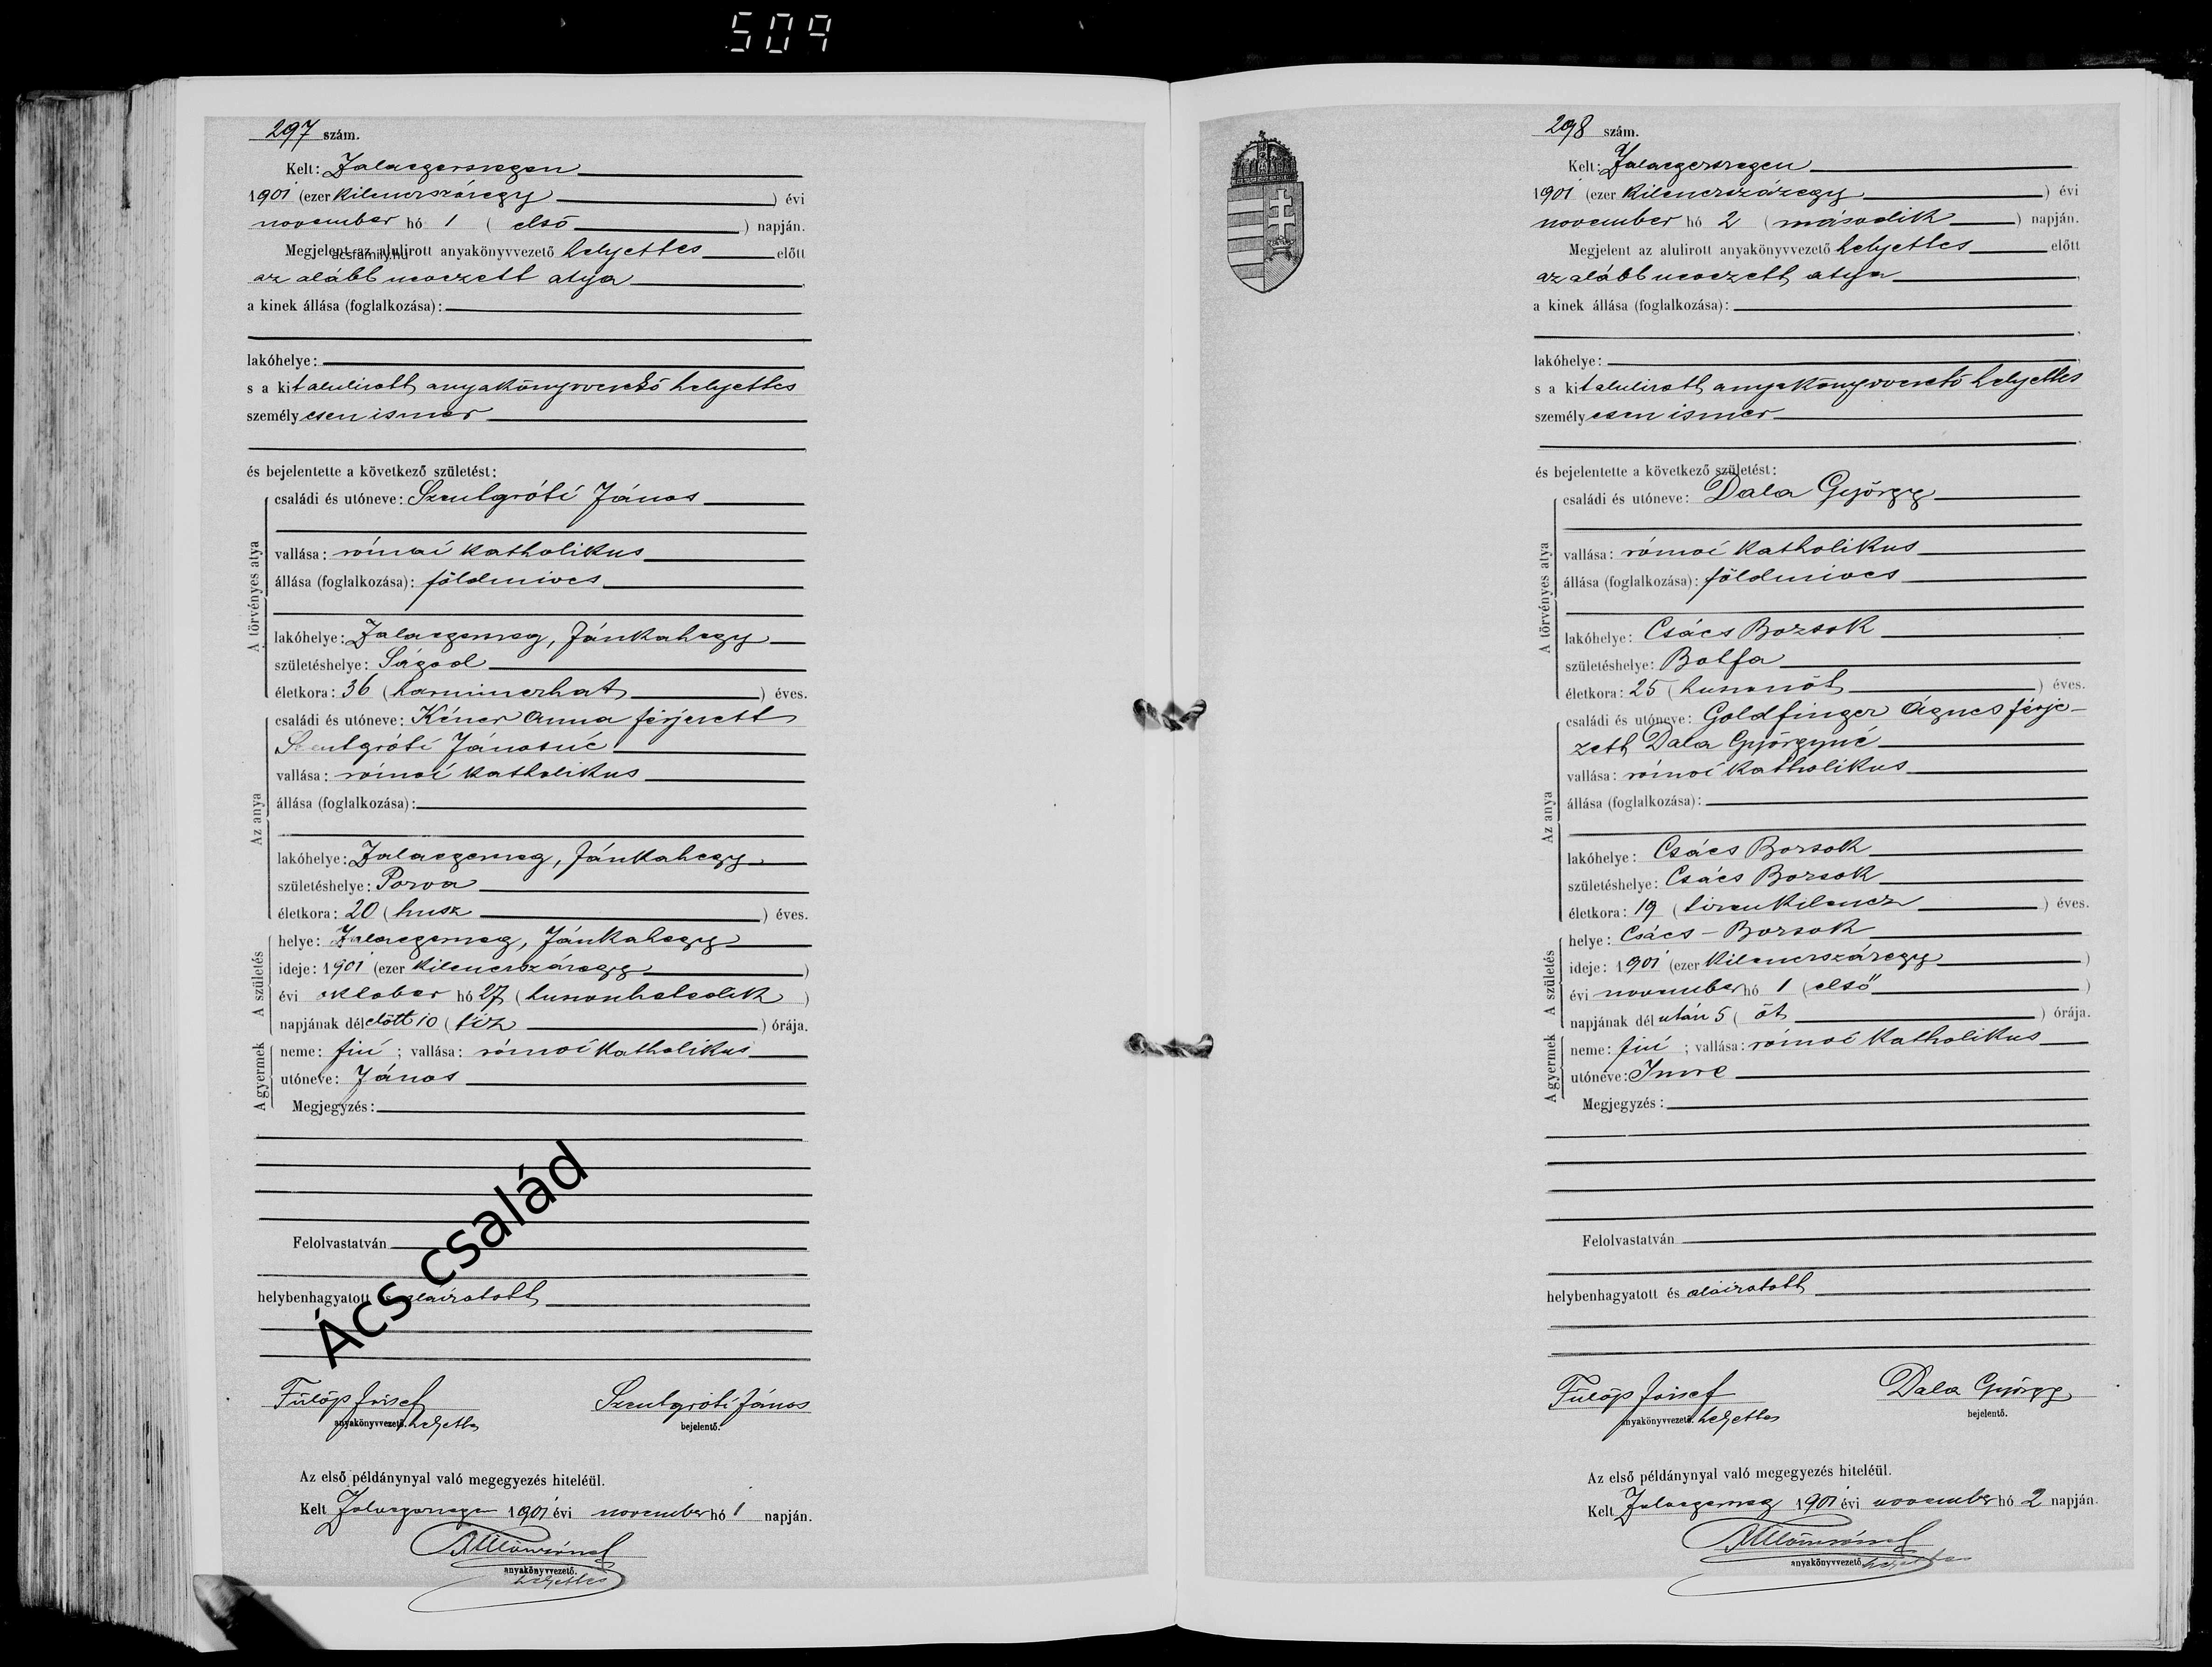 509
297 szám.
Kelt: Zalaegerszegen
1901 (ezer kilenczszázegy ) évi
november hó 1 ( első ) napján.
Megjelent az alulirott anyakönyvvezető helyettes előtt
acsfamily.hu
az alább nevezett atya
a kinek állása (foglalkozása):
lakóhelye:
s a kit alulirott anyakönyvvezető helyettes
személyesen ismer
és bejelentette a következő születést:
A törvényes atya
családi és utóneve: Szentgróti János
vallása: római katholikus
állása (foglalkozása): földmives
lakóhelye: Zalaegerszeg, Jánkahegy
születéshelye: Ságod
életkora: 36 (harminczhat ) éves.
Az anya
családi és utóneve: Kéner Anna férjezett
Szentgróti Jánosné
vallása: római katholikus
állása (foglalkozása):
lakóhelye: Zalaegerszeg, Jánkahegy
születéshelye: Porva
életkora: 20 (husz ) éves.
A születés
helye: Zalaegerszeg, Jánkahegy
ideje: 1901 (ezer kilenczszázegy )
évi oktober hó 27 (huszonhetedik )
napjának délelőtt 10 (tiz ) órája.
A gyermek
neme: fiú ; vallása: római katholikus
utóneve: János
Megjegyzés:
Ács család
Felolvastatván
helybenhagyatott és aláiratott
Fülöp József Szentgróti János
anyakönyvvezető. helyettes bejelentő.
Az első példánynyal való megegyezés hiteléül.
Kelt Zalaegerszegen 1901 évi november hó 1 napján.
anyakönyvvezető.
helyettes
298 szám.
Kelt: Zalaegerszegen
1901 (ezer kilenczszázegy ) évi
november hó 2 (második ) napján.
Megjelent az alulirott anyakönyvvezető helyettes előtt
az alább nevezett atya
a kinek állása (foglalkozása):
lakóhelye:
s a kit alulirott anyakönyvvezető helyettes
személyesen ismer
és bejelentette a következő születést:
A törvényes atya
családi és utóneve: Dala György
vallása: római katholikus
állása (foglalkozása): földmives
lakóhelye: Csács Bozsok
születéshelye: Botfa
életkora: 25 (huszonöt ) éves.
Az anya
családi és utóneve: Goldfinger Ágnes férje-
zett Dala Györgyné
vallása: római katholikus
állása (foglalkozása):
lakóhelye: Csács Bozsok
születéshelye: Csács Bozsok
életkora: 19 (tizenkilencz ) éves.
A születés
helye: Csács-Bozsok
ideje: 1901 (ezer kilenczszázegy )
évi november hó 1 (első )
napjának délután 5 ( öt ) órája.
A gyermek
neme: fiú ; vallása: római katholikus
utóneve: Imre
Megjegyzés:
Felolvastatván
helybenhagyatott és aláiratott
Fülöp József Dala György
anyakönyvvezető. helyettes bejelentő.
Az első példánynyal való megegyezés hiteléül.
Kelt Zalaegerszeg 1901 évi november hó 2 napján.
anyakönyvvezető helyettes